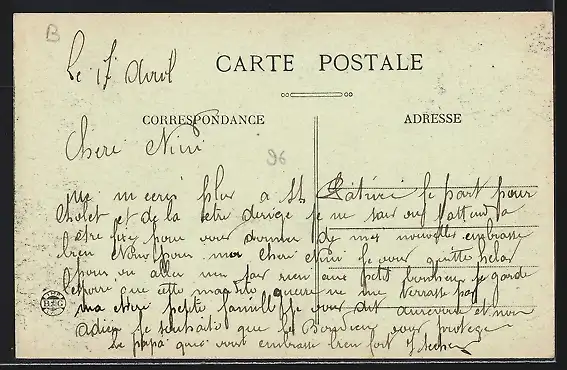 B
Le 17 Avril
CARTE POSTALE
CORRESPONDANCE
ADRESSE
Cheri Nini
96
ne m ecris plus a St je part pour
Cholet et de la etre dirige je ne sai ou attend a
être fixé pour vous donner de mes nouvelles embrasse
bien pour moi Cheri Nini je vous quitte
pour un aller
l espoire que cette maudite guerre ne me terrasse pas
ma chere petite famille je vous dit aurevoire et non
adieu je souhaite que le Bondieu vous protege
Le papa qui vous embrasse bien fort
B&G